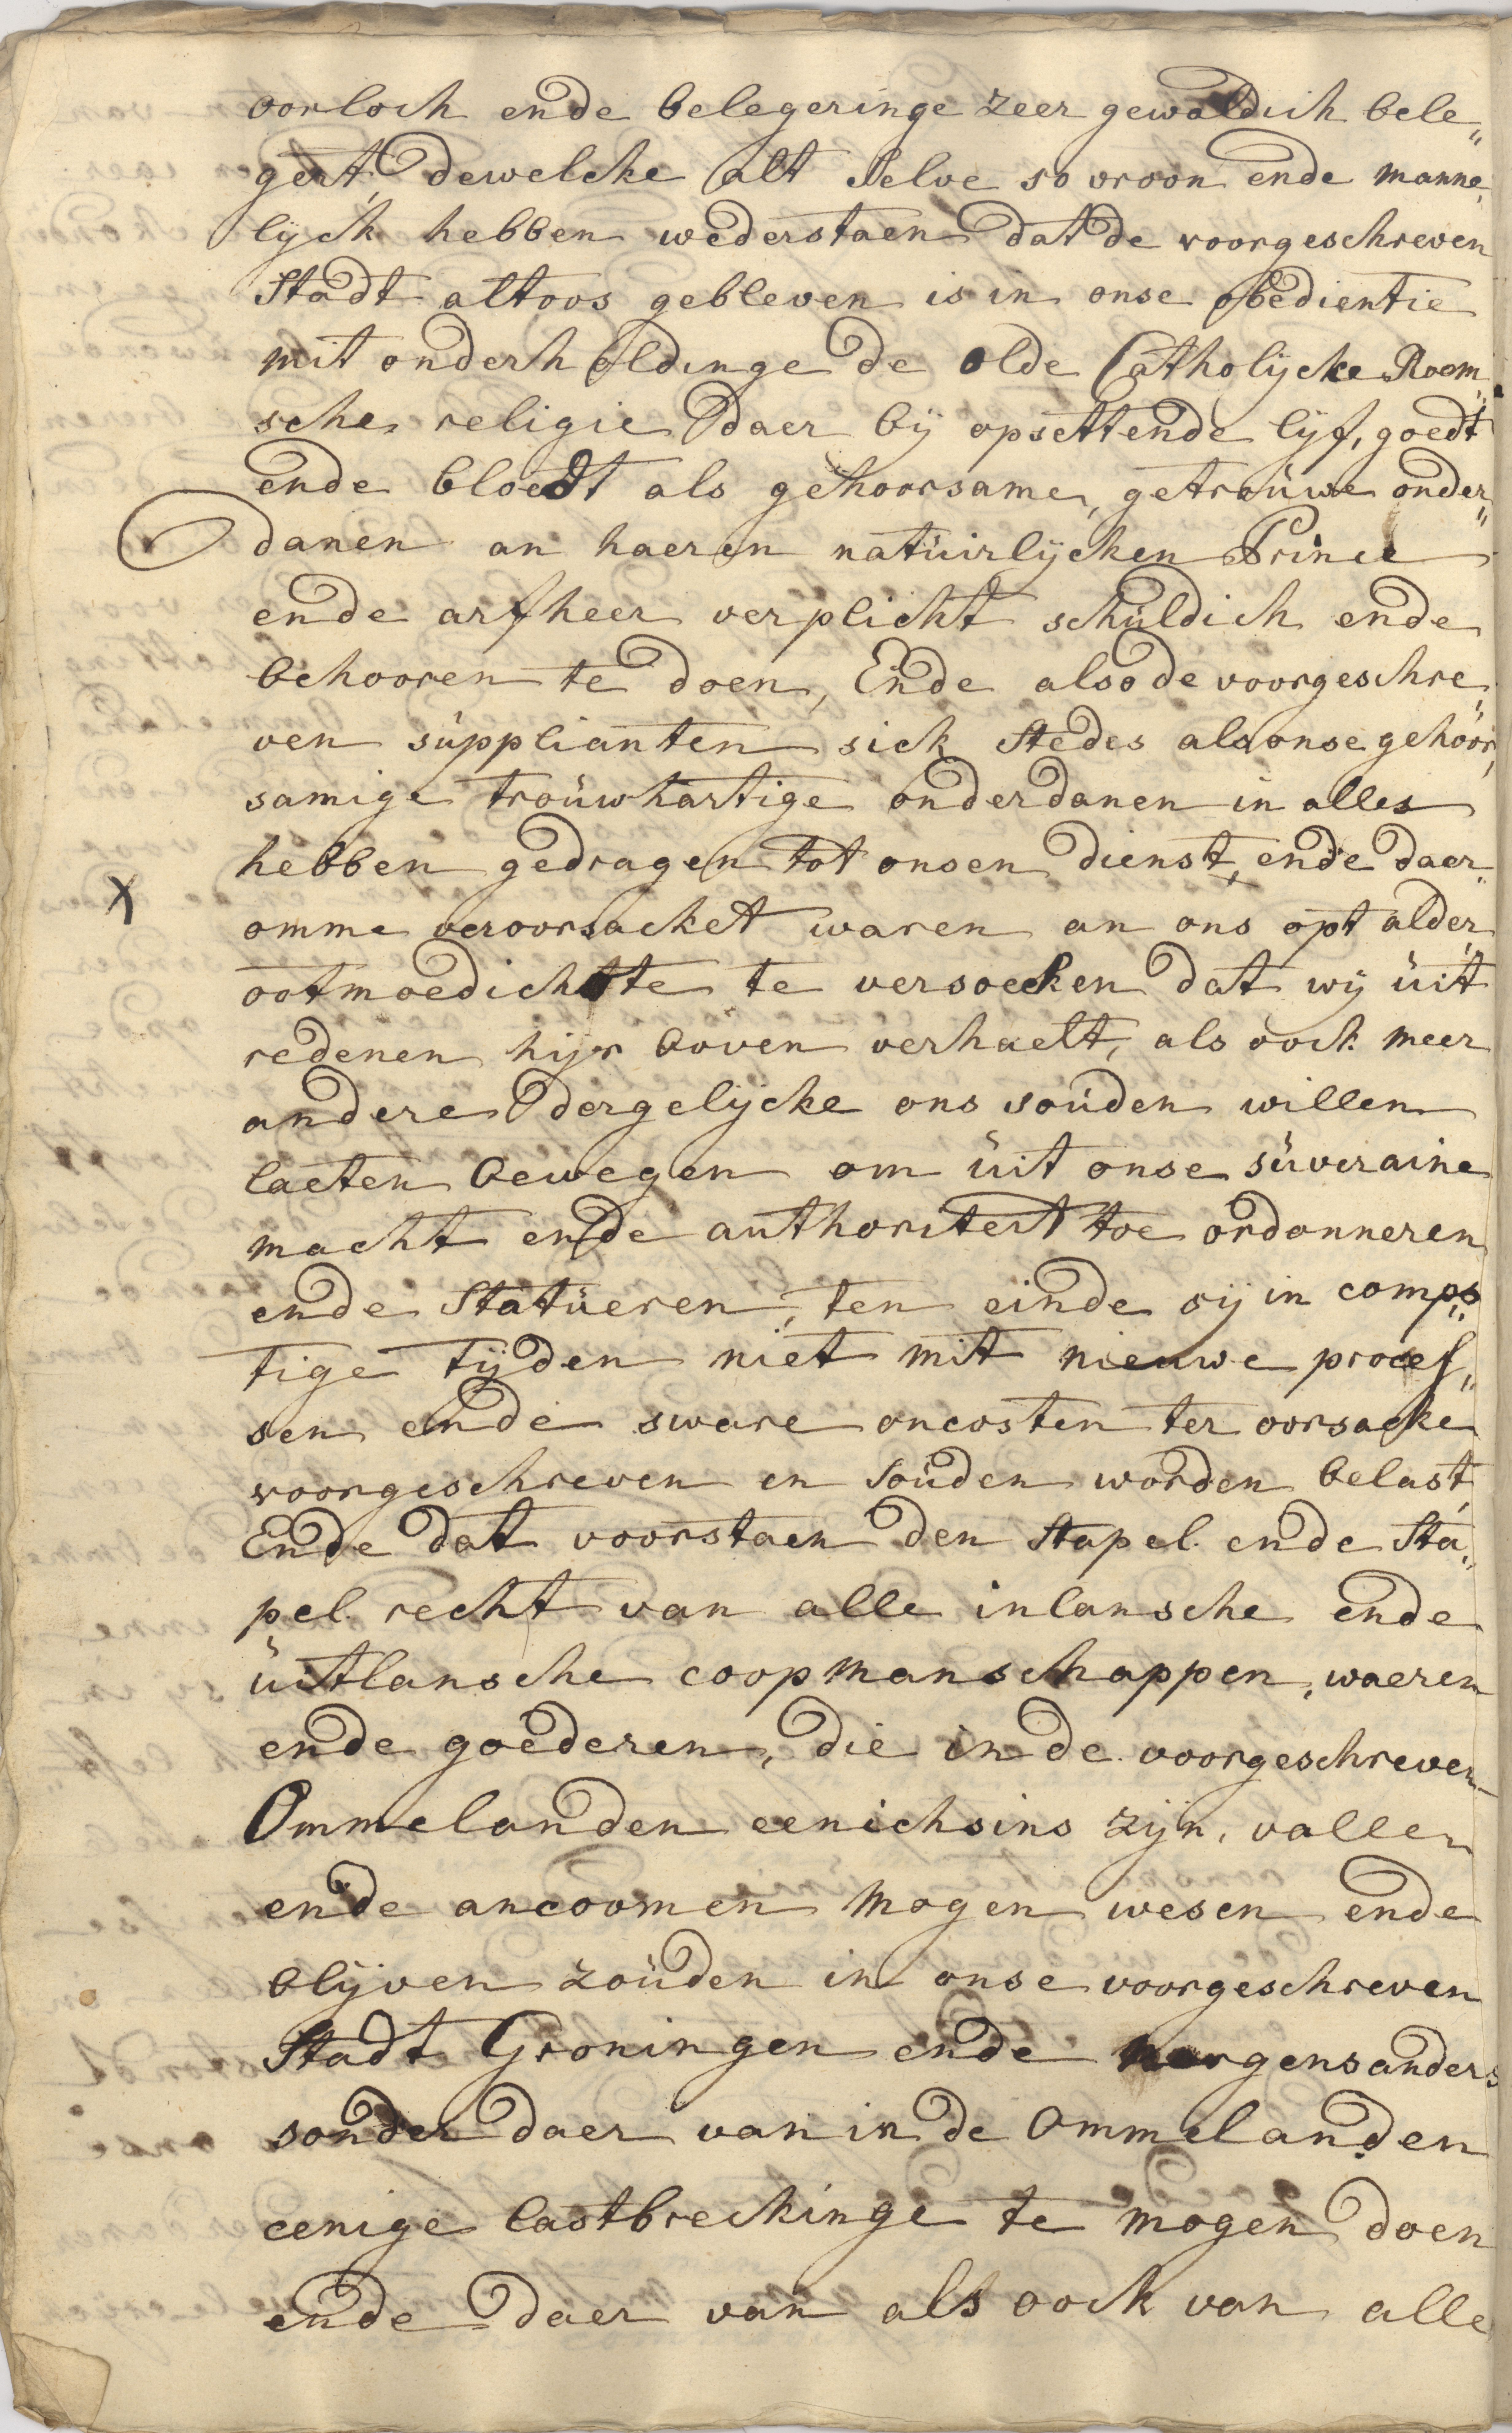 oorloch ende belegeringe zeer gewaldich bele„
gert, dewelcke alt selve so vroon ende manne„
lijck hebben wederstaen dat de voorgeschreven
Stadt altoos gebleven is in onse obedientie
mit onderholdinge de olde Catholijcke Room„
sche religie daer bij opsettende lijf, goedt
ende bloedt als gehoorsame, getrouwe onder„
danen an haeren natuirlijcken Prince
ende arfheer verplicht schuldich ende
behooren te doen, Ende also de voorgeschre„
ven supplianten sick stedes als onse gehoor„
samige trouwhartige onderdanen in alles
hebben gedragen tot onsen dienst, ende daer„
X
omme veroorsacket waren an ons opt alder„
ootmoedichste te versoecken dat wij uit
redenen hijr boven verhaelt, als oock meer
andere dergelijcke ons souden willen
laeten bewegen om uit onse suveraine
macht ende authoriteit toe ordonneren
ende Statueren, ten einde sij in comps„
tige tijden niet mit nieuwe proces„
sen ende sware oncosten ter oorsacke
voorgeschreven en souden worden belast,
Ende dat voorstaen den Stapel ende Sta„
pel recht van alle inlansche ende
uitlansche coopmanschappen, waeren
ende goederen, die in de voorgeschreven
Ommelanden eenichsins zijn, vallen
ende ancoomen mogen wesen ende
blijven zouden in onse voorgeschreven
Stadt Groningen ende nergens anders
sonder daer van in de Ommelanden
eenige lastbreckinge te mogen doen
ende daer van als oock van alle